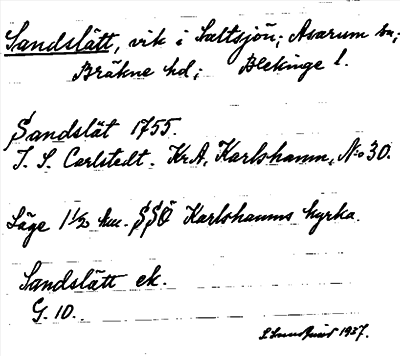 Sandslätt, vik i Saltsjön; Asarum sn;
Bräkne hd; Blekinge l.
Sandslät 1755.
J. S. Carlstedt. KrA, Karlshamn, No 30.
Läge 1 1/2 km. SSÖ Karlshamns kyrka.
Sandslätt ek.
G. 10.
1927.